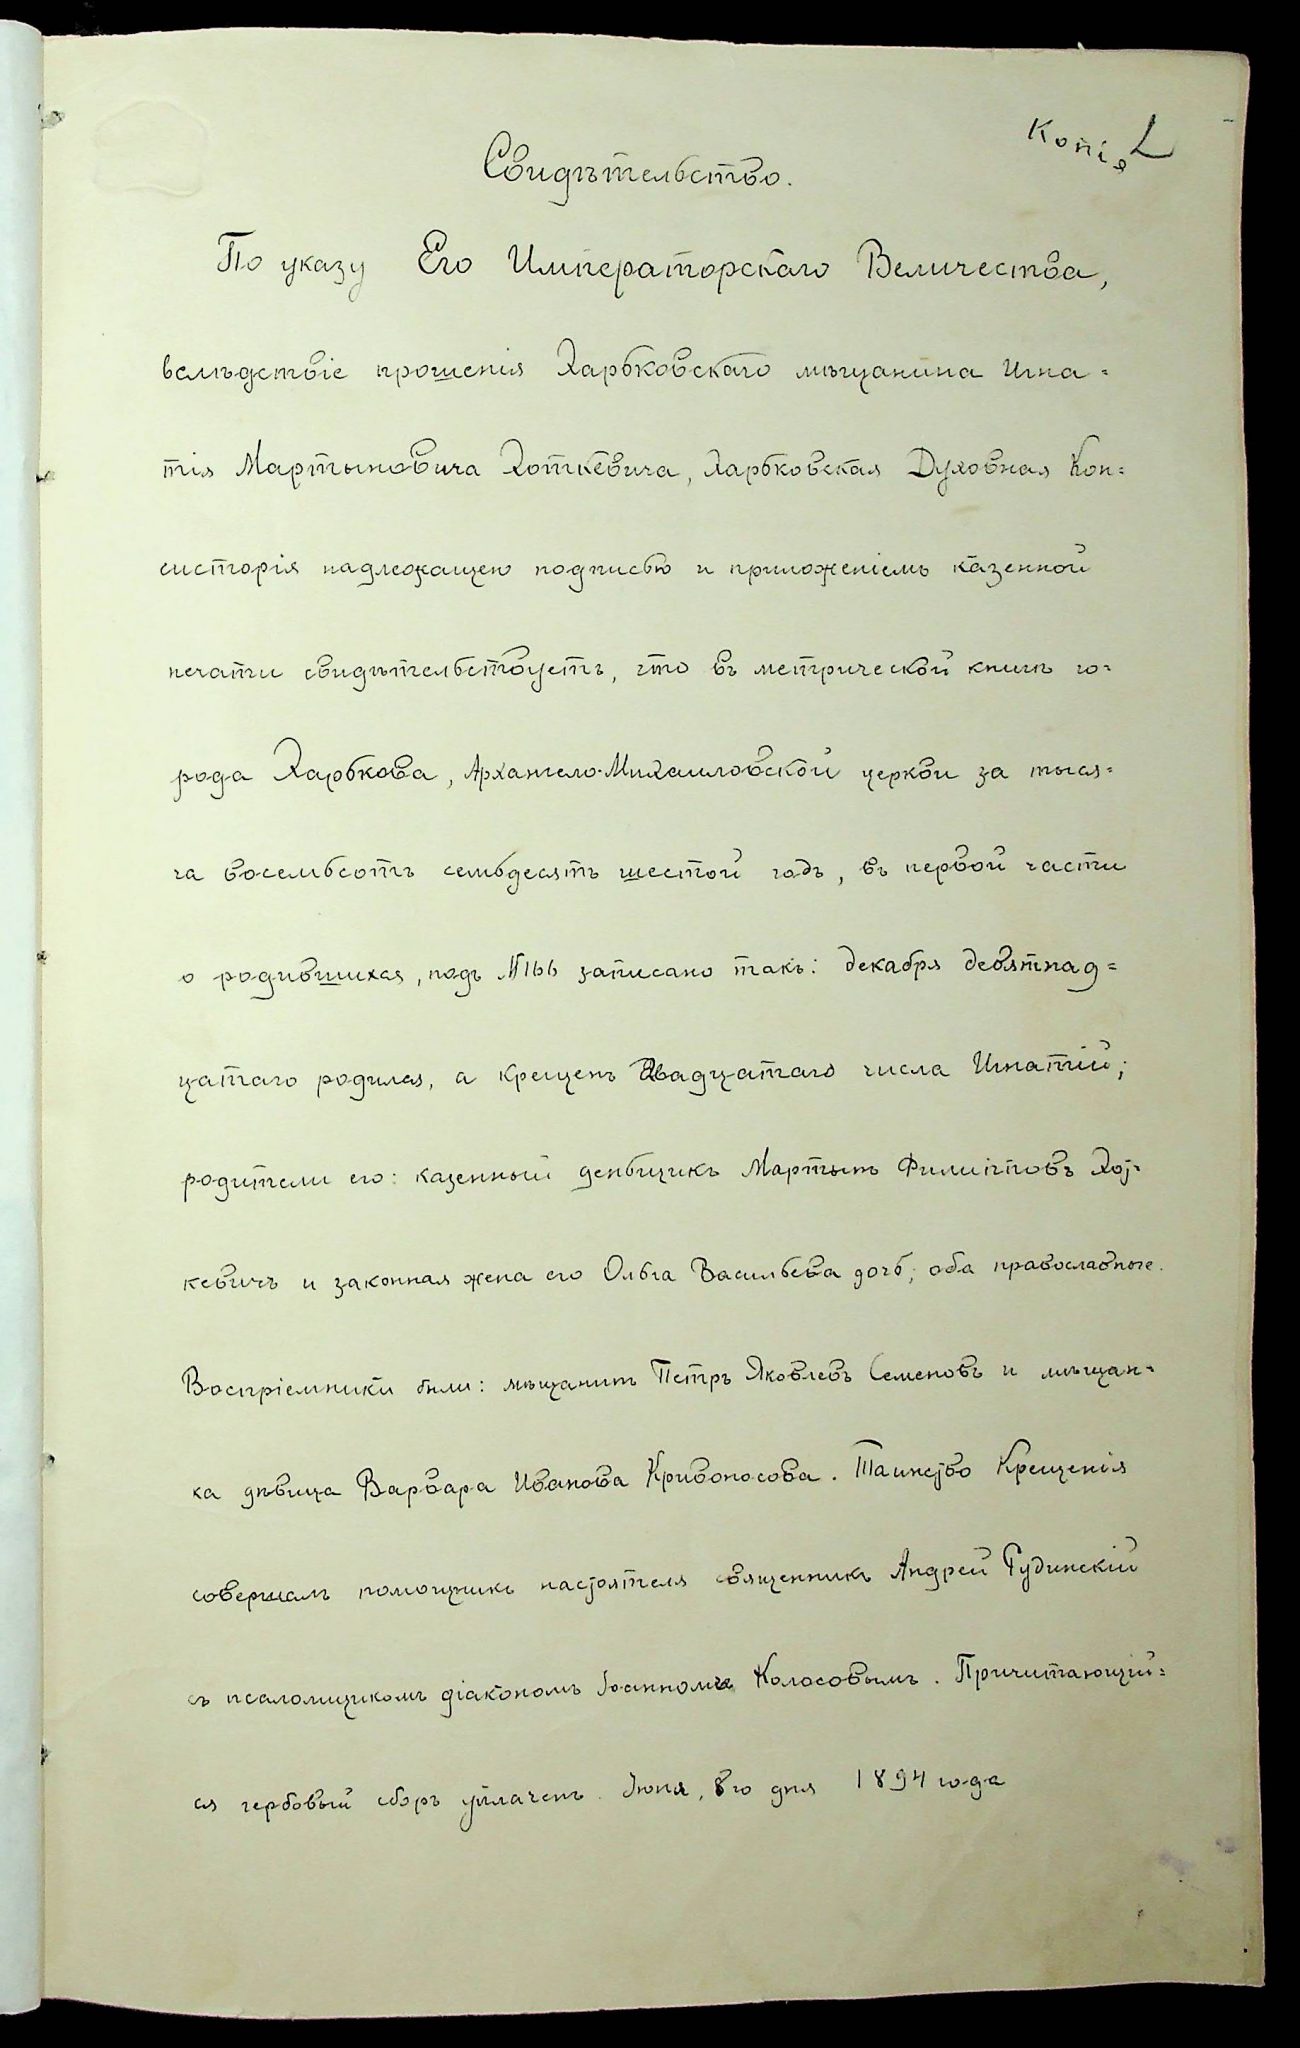 Копія
Свидѣтельство.
По указу Его Императорскаго Величества,
вслѣдствіе прошенія Харьковскаго мѣщанина Игна=
тія Мартыновича Хоткевича, Харьковская Духовная Кон=
систорія надлежащею подписью и приложеніемъ казенной
печати свидѣтельствуетъ, что въ метрической книгѣ го=
рода Харькова, Архангело-Михаиловской церкви за тыся=
ча восемьсотъ семьдесятъ шестой годъ, въ первой части
о родившихся, подъ №166 записано такъ: декабря девятнад=
цатаго родился, а крещенъ двадцатаго числа Игнатій;
родители его: казенный деньщикъ Мартынъ Филипповъ Хот=
кевичъ и законная жена его Ольга Васильева дочь; оба православные.
Воспріемники были: мѣщанинъ Петръ Яковлевъ Семеновъ и мѣщан=
ка дѣвица Варвара Иванова Кривоносова. Таинство Крещенія
совершалъ помощникъ настоятеля священникъ Андрей Гудинскій
съ псаломщикомъ діакономъ Іоанномъ Колосовымъ. Причитающій=
ся гербовый сборъ уплаченъ. Іюня, 8го дня 1894 года